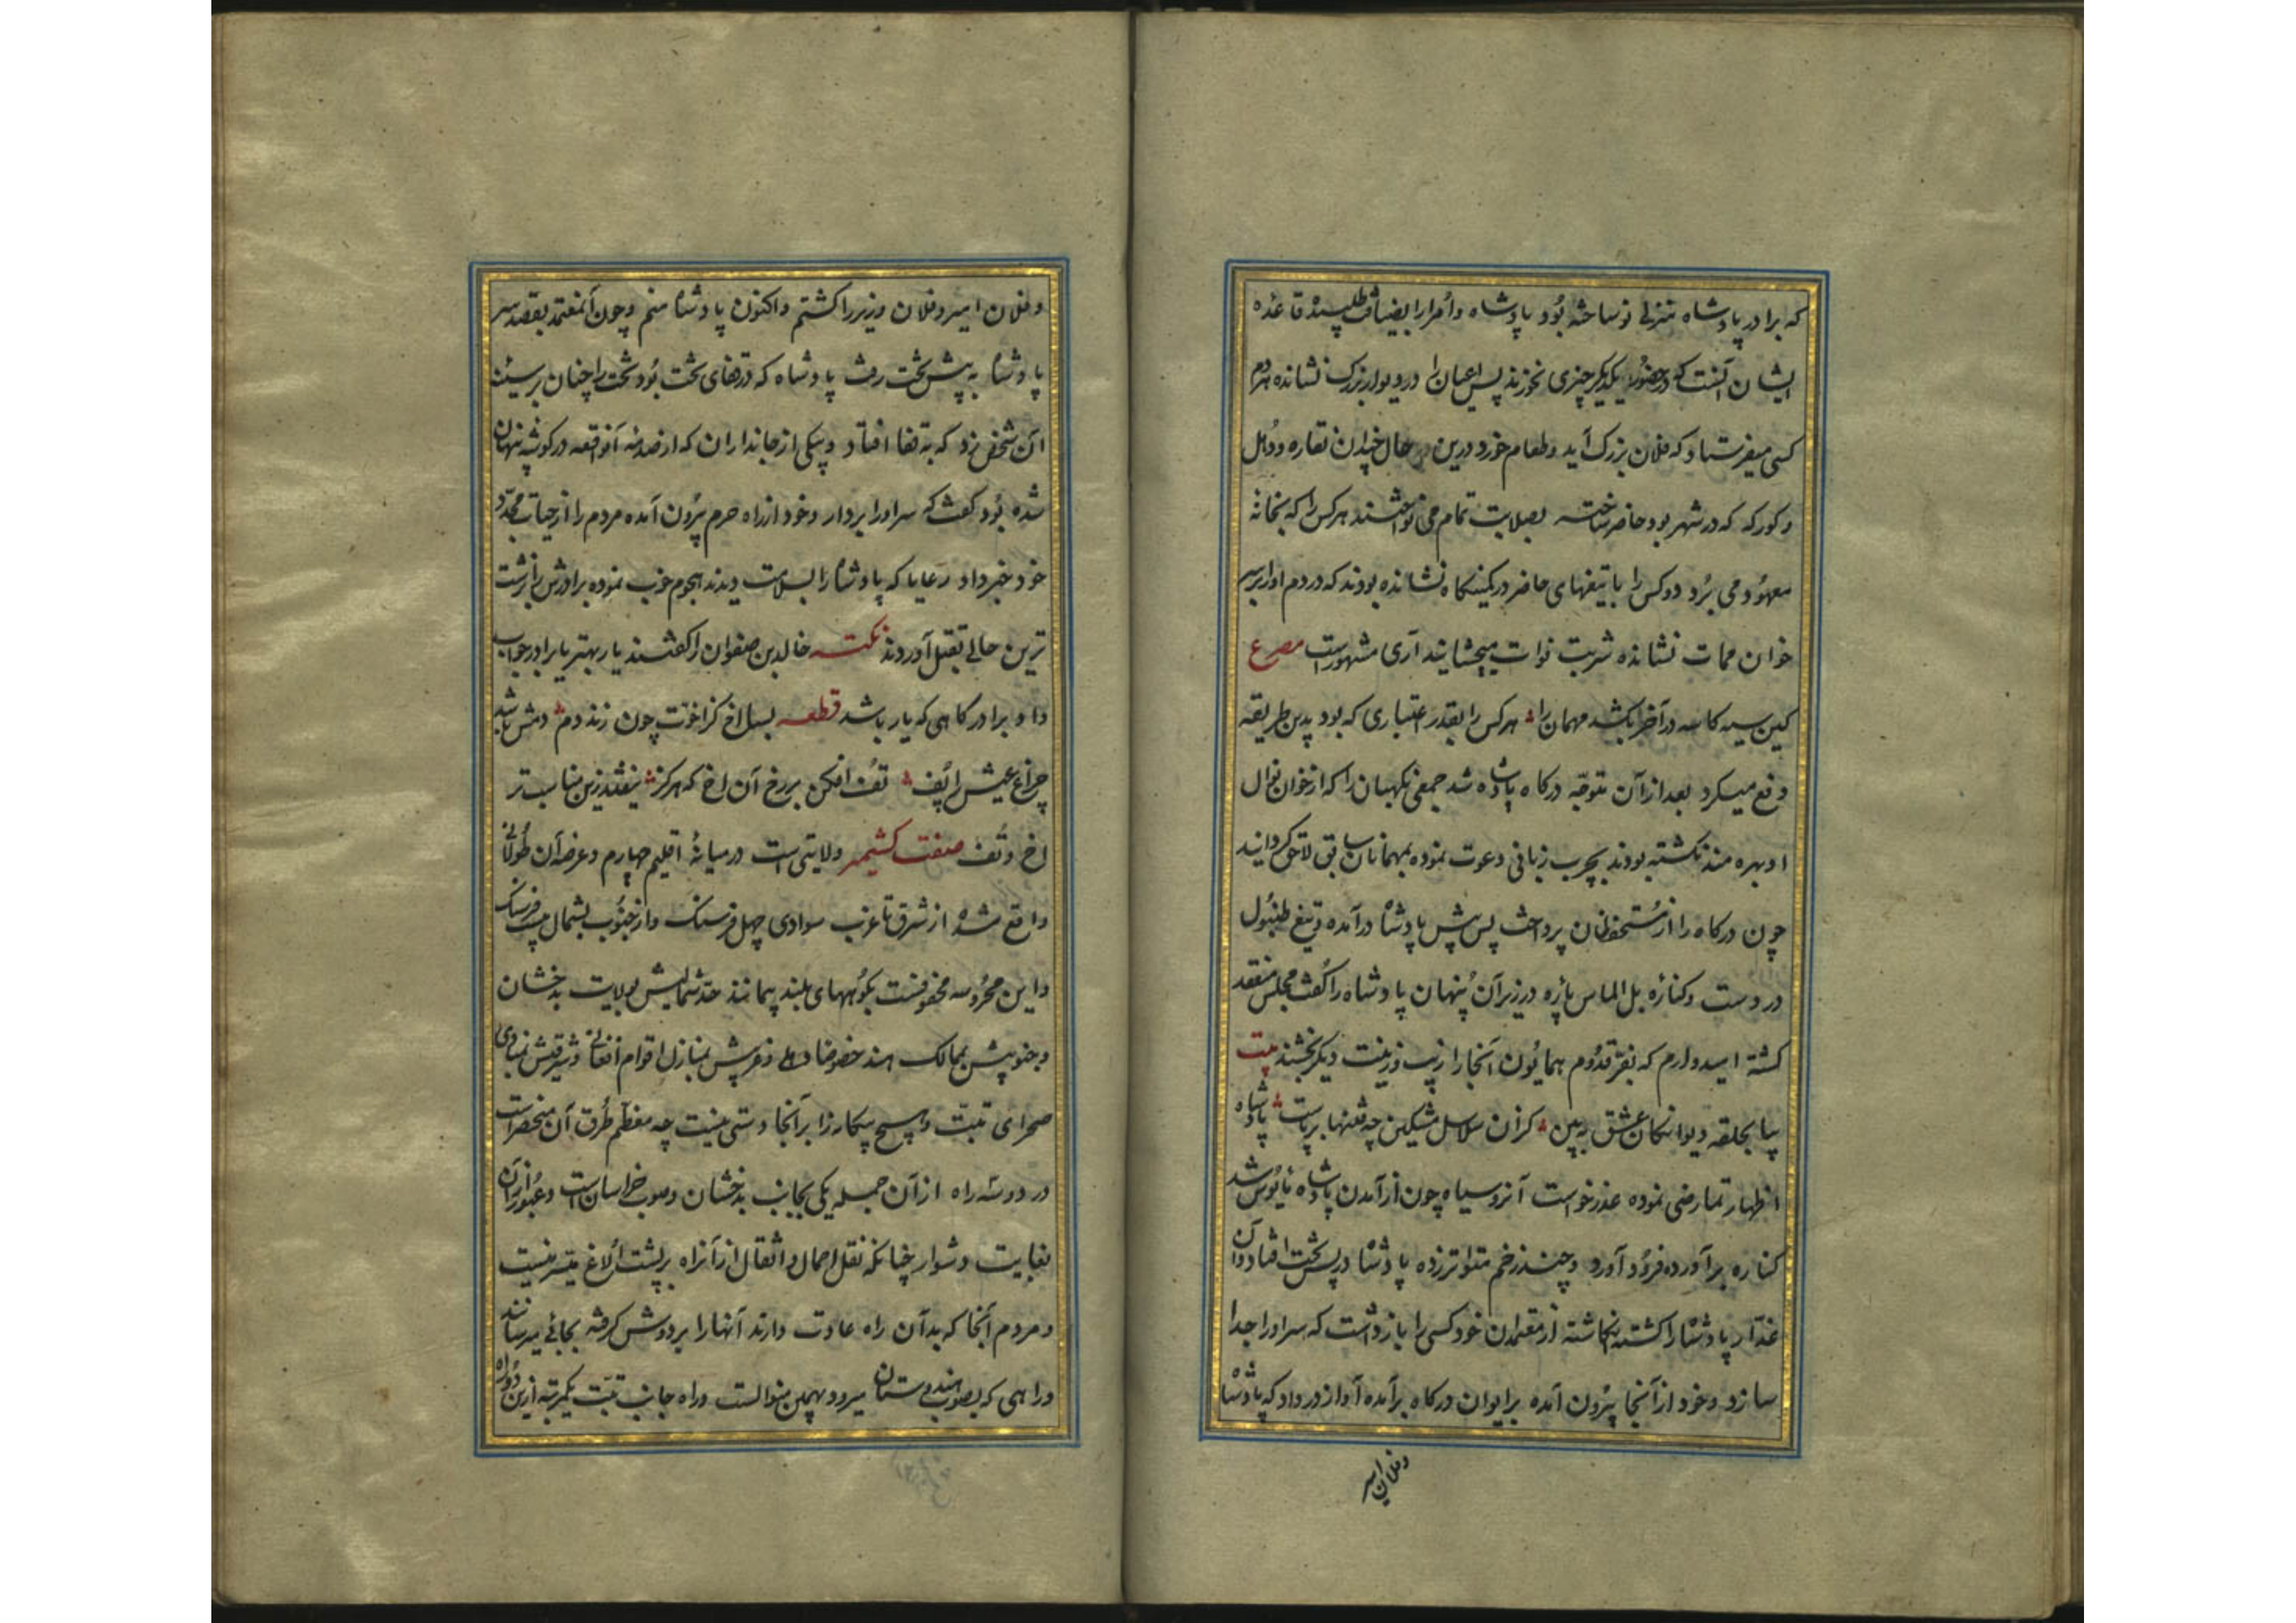 که برادر پادشاه منزلی نو ساخته بود پادشاه و امرا را بضیافت طلبید قاعده
ایشان آنست که در حضور یکدیگر چیزی نخورند پس اعیان را در دیوار بزرک نشانده هر دم
کسی میفرستاد که فلان بزرک آید و طعام خورد درین حال چندان نقاره و دهل
و کورکه که در شهر بود حاضر ساخته بصلابت تمام می نواختند هر کس را که بخانهٔ
معهود می برد دو کس را با تیغهای حاضر در کمینکاه نشانده بودند که در دم او را بر سر
خوان ممات نشانده شربت فوات میچشانیدند آری مشهورست مصرع
کین سیه کاسه در آخر بکشد مهمان را هر کس را بقدر اعتباری که بود بدین طریقه
دفع میکرد بعد از آن متوجه درکاه پادشاه شد جمعی نکهبان را که از خوان نوال
او بهره مند نکشته بودند بچرب زبانی دعوت نموده بمهمانان سابق لاحق کردانید
چون درکاه را از مستحفظان پرداخت پس پیش پادشاه درآمده و تیغ
در دست و کناره در زیر آن پنهان پادشاه را کفت مجلس منعقد
کشته امیدوارم که بفر قدوم همایون آنجا را زیب و زینت دیکر بخشند بیت
بیا بحلقه دیوانکان عشق ببین کزان سلاسل مشکین چه فتنها برپاست پادشاه
اظهار تمارضی نموده عذر خواست آنرو سیاه چون از آمدن پادشاه مایوس شد
کناره برآورده فرود آورد و چند زخم متواتر زده پادشاه در پس تخت افتاد و آن
غدار پادشاه را کشته انکاشته از معتمدان خود کسی را باز داشت که سر او را جدا
سازد و خود از آنجا بیرون آمده بر ایوان درکاه برآمده آواز در داد که پادشاه
و فلان امیر
و فلان امیر و فلان وزیر را کشتم و اکنون پادشاه منم و چون آن معتمد بقصد سر
پادشاه به پیش تخت رفت پادشاه که در قفای تخت بود تخت را چنان بر سینهٔ
آن شخص زد که به قفا افتاد و یکی از جانداران که از صدمهٔ آنواقعه در کوشه پنهان
شده بود کفت که سر او را بردار و خود از راه حرم بیرون آمده مردم را از حیات مجدد
خود خبر داد رعایا که پادشاه را بسلامت دیدند هجوم خوب نموده برادرش را بزشت
ترین حالی بقتل آوردند نکته خالد بن صفوان را کفتند یار بهتر یا برادر جواب
داد برادر کاهی که یار باشد قطعه بسا اخ کز اخوت چون زند دم دمش باشد
چراغ عیش را پف تف افکن بر رخ آن اخ که هرکز نیفتد زین مناسبتر
اخ و تف صفت کشمیر ولایتی است در میانهٔ اقلیم چهارم و عرصه آن طولانی
واقع شده از شرق تا غرب سوادی چهل فرسنک و از جنوب بشمال بیست فرسنک
و این محروسه محفوفست بکوههای بلند پیمانند حد شمالیش بولایت بدخشان
و جنوبیش بممالک هند خصوصا دهلی و غربیش بمنازل اقوام افغانی و شرقیش بمبادی
صحرای تبت و هیچ بیکانه را بر آنجا دستی نیست چه معظم طرق آن منحصرست
در دو سه راه از آن جمله یکی بجانب بدخشان و صوب خراسانست و عبور از آن
بغایت دشوار چنانکه نقل احمال و اثقال از آن راه بر پشت الاغ میسر نیست
و مردم آنجا که بدآن راه عادت دارند آنها را بر دوش کرفته بجائی میرسانند
و راهی که بصوب هندوستان میرود بهمین منوالست و راه جانب تبت یکمرتبه ازین دو راه